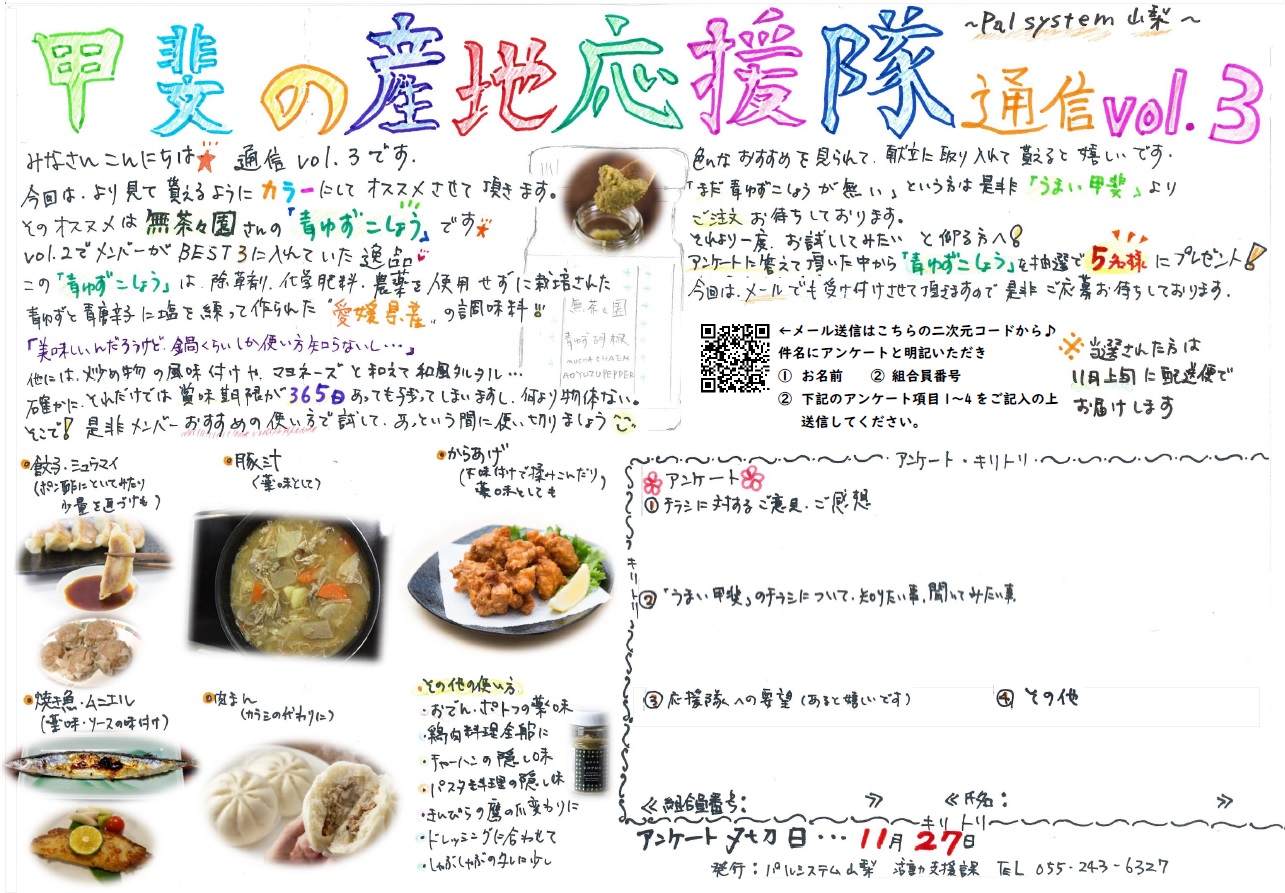 甲斐の産地応援隊通信vol.3
~Palsystem山梨~
みなさんこんにちは 通信vol.3です.
今回は、より見て貰えるようにカラーにしてオススメさせて頂きます。
そのオススメは無茶々園さんの「青ゆずこしょう」です
vol.2でメンバーがBEST3に入れていた逸品
この「青ゆずこしょう」は、除草剤、化学肥料、農薬を使用せずに栽培された
青ゆずと青唐辛子に塩を練って作られた“愛媛県産”の調味料!!
「美味しいんだろうけど、鍋くらいしか使い方知らないし…」
他には、炒め物の風味付けや、マヨネーズと和えて和風タルタル…
確かに、それだけでは賞味期限が365日あっても残ってしまいますし、何より勿体ない。
そこで!是非メンバーおすすめの使い方で試して、あっという間に使い切りましょう
無茶々園
青ゆず胡椒
MUCHACHAEN
AOYUZUPEPPER
色んなおすすめを見られて、献立に取り入れて貰えると嬉しいです.
「まだ青ゆずこしょうが無い」という方は是非「うまい甲斐」より
ご注文お待ちしております。
それより一度、お試ししてみたいと仰る方へ!
アンケートに答えて頂いた中から「青ゆずこしょう」を抽選で5名様にプレゼント!
今回は、メールでも受け付けさせて頂きますので是非ご応募お待ちしております.
←メール送信はこちらの二次元コードから♪
件名にアンケートと明記いただき
① お名前 ② 組合員番号
② 下記のアンケート項目1~4をご記入の上
送信してください。
※当選された方は
11月上旬に配送便で
お届けします
餃子・シュウマイ
(ポン酢にといてみたり
少量を直づけも)
豚汁
(薬味として)
からあげ
(下味付けで揉みこんだり
薬味としても)
焼き魚・ムニエル
(薬味・ソースの味付け)
肉まん
(カラシの代わりに)
その他の使い方
・おでん・ポトフの薬味
・鶏肉料理全般に
・チャーハンの隠し味
・パスタ料理の隠し味
・きんぴらの鷹の爪変わりに
・ドレッシングに合わせて
・しゃぶしゃぶのタレに少し
アンケート・キリトリ
アンケート
①チラシに対するご意見・ご感想
キリトリ
②「うまい甲斐」のチラシについて、知りたい事、聞いてみたい事
③応援隊への要望(あると嬉しいです)
④その他
≪組合員番号: ≫ ≪氏名: ≫
キリトリ
アンケート〆切日…11月27日
発行:パルシステム山梨 活動支援課 TEL 055-243-6327